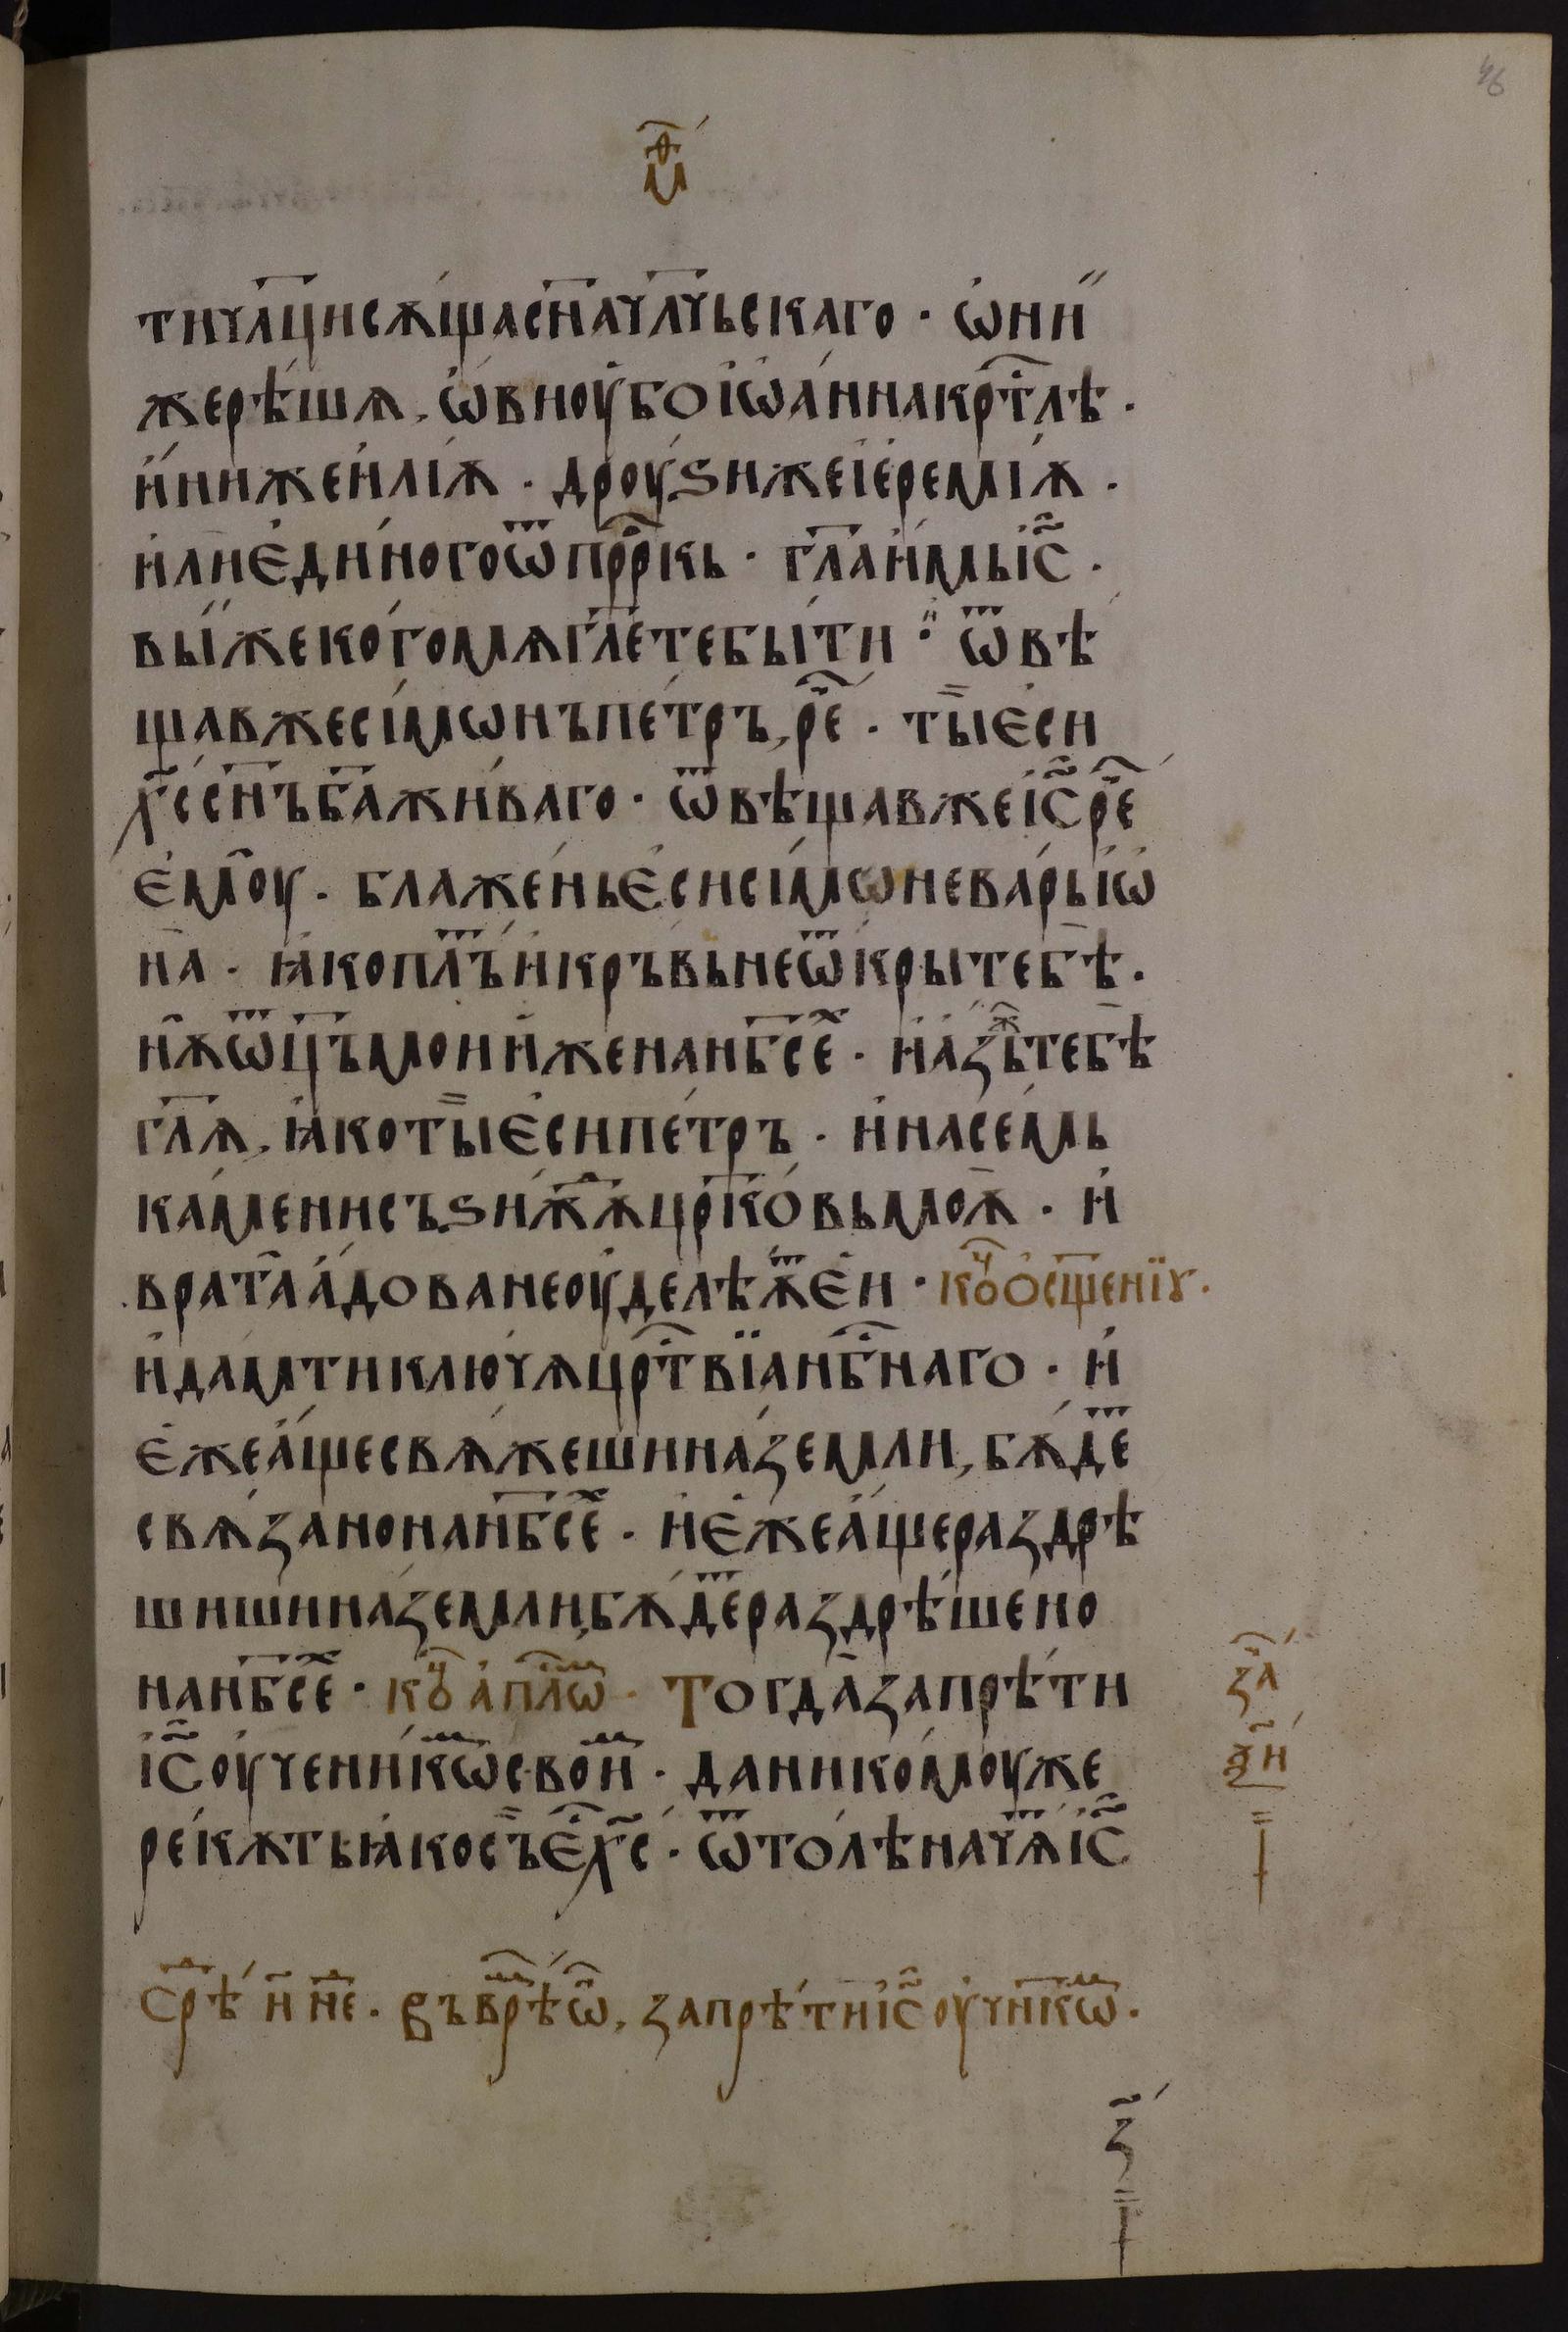 м҃ѳ
тичл҃цисѫщасн҃ачл҃чьскаго · ѡ҆ни
жерѣ́шѧ , ѡ҆́виоу҆боі҆ѡа́ннакрⷭ҇тлѣ ·
и҆ниже и҆лі́ѫ · дроуѕижеі҆ереміѫ ·
и҆лиє҆ди́ногоѿпррⷪ҇кь · гл҃аи҆́мьі҆с҃ ·
вы́жекогомѧгл҃етебы́ти · ѿвѣ
щавжесі́мѡнъпе́тръ , рⷱ҇е · тыє҆́си
хс҃ сн҃ъб҃ажи́ваго · ѿвѣщавжеі҆с҃рⷱ҇е
є҆моу · блаже́ньє҆сисі́мѡневарьі҆ѡ
на · ꙗ҆коплⷮъи҆кръ́вьнеѿкрытебѣ ·
нѫѿц҃ъмоии҆женанб҃сеⷯ · и҆а҆́зъⷤтебѣ
гл҃ѧ , ꙗ҆котыє҆сипе́тръ · и҆насемь
ка́менисъѕи́жⷣѫцр҃ко́вьмоѫ · и҆
врата а҆́дованеоу҆делѣѫⷮє҆и · коⷱ҇ ѡ҆сщ҃енїꙋ ·
и҆да́мтиключѧцрⷭ҇твїанбⷭ҇наго · и҆
є҆жеа҆́щесвѧ́жешина́земли , бѫ́деⷮ
свѧ́занонанб҃сеⷯ · и҆є҆́жеа҆́щераздрѣ
шишина́земли , бѫ́деⷮраздрѣ́шено
нанб҃сеⷯ · коⷱ҇ а҆пⷭ҇лѡⷨ · Тогдазапрѣ́ти
і҆с҃оу҆чени́кѡⷨсвоиⷨ · даникомоуже
рекѫтьꙗ҆косъє҆́ⷭ҇хс҃ · ѿто́лѣначѧⷮі҆с҃
заⷱ҇
ѯ҃и
срⷣѣ и҃ неⷣ · Въврⷨѣѡ҆́ⷩ , запрѣ́тиі҆с҃оу҆чн҃кѡⷨ ·
з҃